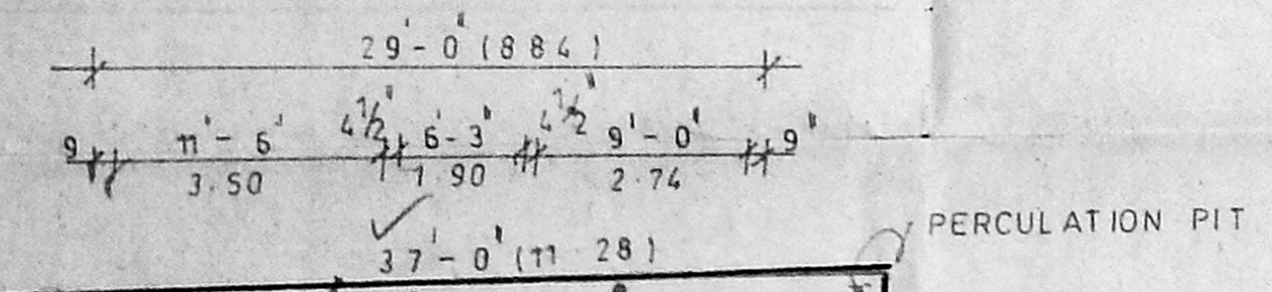 29'-0" (884)
9 11'-6' 4 1/2" 6'-3" 4 1/2" 9'-0" 9"
3.50 1.90 2.74
37'-0" (11 28)
PERCULATION PIT